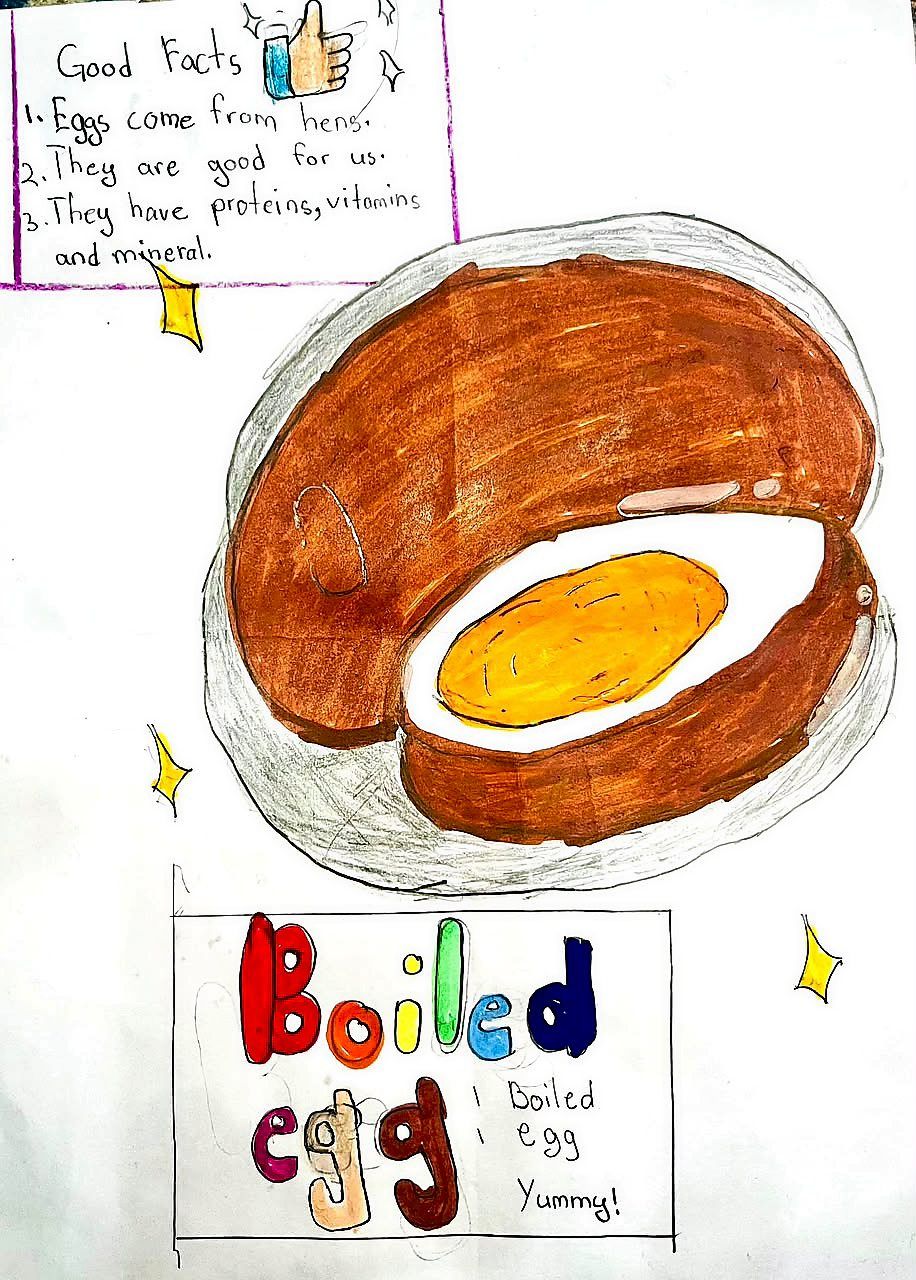 Good Facts
1. Eggs come from hens.
2. They are good for us.
3. They have proteins, vitamins
and mineral.
Boiled
egg
Boiled
egg
Yummy!